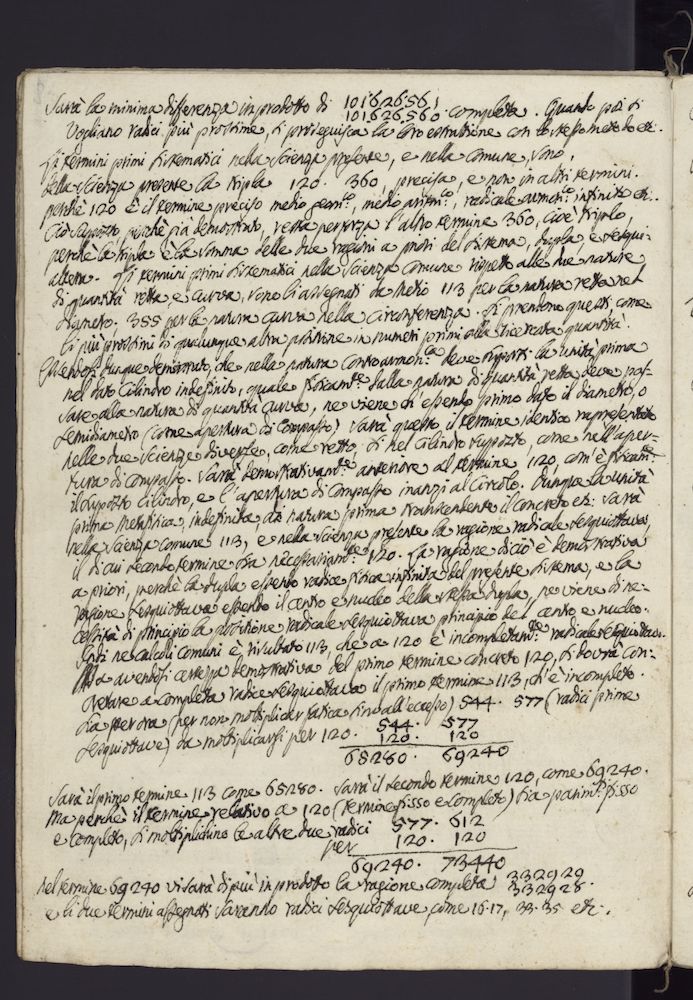 Sarà la minima differenza in prodotto di 101626561
101626560 completa. Quando poi si
vogliano radici più prossime, si proseguisca la loro estrattione con lo stesso metodo etc.
Li termini primi sistematici nella scienza presente, e nella comune, sono,
della scienza presente la tripla 120. 360, precisa, e non in altri termini.
perchè 120 è il termine preciso medio geom.co, medio aritm.co, radicale armon.co infinito etc.
Ciò supposto, perchè già demostrato, resta per forza l'altro termine 360, cioè triplo,
perchè la tripla è la somma delle due ragioni a priori del sistema, dupla, e sesqui-
altera. Li termini primi sistematici nella scienza comune rispetto alle due nature
di quantità retta e curva, sono li assegnati da Metio 113 per la natura retta nel
diametro. 355 per la natura curva nella circonferenza. Si prendono questi come
li più prossimi di qualunque altra posizione in numeri primi alla ricercata quantità.
Essendosi dunque demostrato, che nella natura contrarmon.ca deve supporsi la unità prima
nel dato cilindro indefinito, quale fisicam.te dalla natura di quantità retta deve pas-
sare alla natura di quantità curva, ne viene ch'essendo primo dato il diametro, o
semidiametro (come apertura di compasso) sarà questo il termine identico rapresentato
nelle due scienze diverse, come retto, sì nel cilindro supposto, come nell'aper-
tura di compasso. Sarà demostrativam.te anteriore al termine 120, com'è fisicam.te
il supposto cilindro, e l'apertura di compasso inanzi al circolo. Dunque la unità
prima metafisica, indefinita di natura prima trascendente il concreto etc. sarà
nella scienza comune 113, e nella scienza presente la ragione radicale sesquiottava,
il di cui secondo termine sia necessariam.te 120. La ragione di ciò è demostrativa
a priori, perchè la dupla essendo radice fisica infinita del presente sistema, e la
ragione sesquiottava essendo il centro e nucleo della stessa dupla, ne viene di ne-
cessità di principio la posizione radicale sesquiottava principio del centro e nucleo.
Indi ne calcoli comuni è risultato 113, che a 120 è incompletam.te radicale sesquiottavo.
Ma avendosi certezza demostrativa del primo termine concreto 120, si dovrà con-
cretare a completa radice sesquiottava il primo termine 113, ch'è incompleto.
Sia per ora (per non moltiplicar fatica sino all'eccesso) 544. 577 (radici prime
sesquiottave) da moltiplicarsi per 120. 544. 577
120. 120
65280. 69240
Sarà il primo termine 113 come 65280. Sarà il secondo termine 120, come 69240.
Ma perchè il termine relativo a 120 (termine fisso e completo) sia parim.te fisso
e completo, si moltiplichino le altre due radici 577. 612
per 120. 120
69240. 73440
Nel termine 69240 vi sarà di più in prodotto la ragione completa 332929
332928.
e li due termini assegnati saranno radici sesquiottave come 16.17, 33.35 etc.